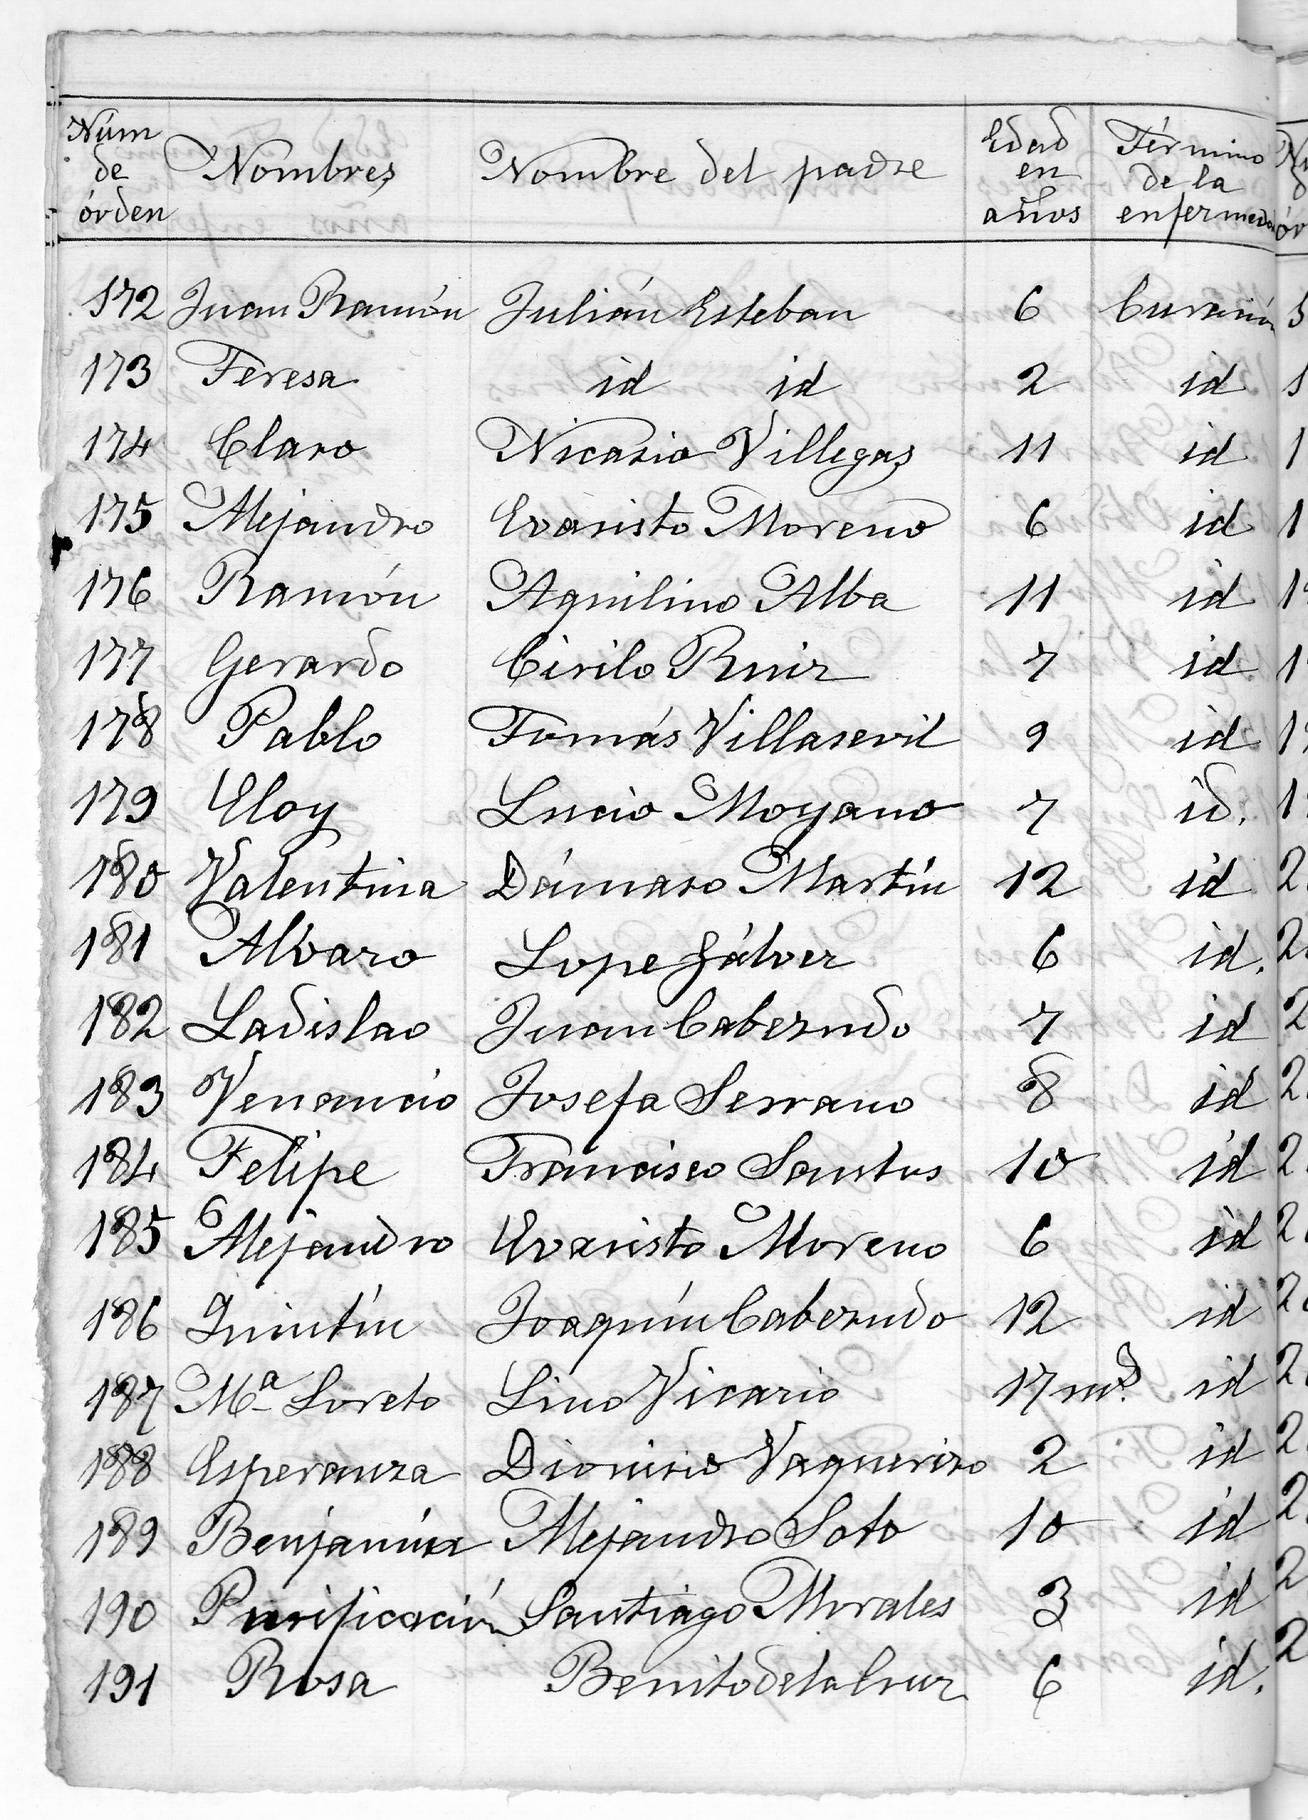 Núm de órden Nombres Nombre del padre Edad en años Término de la enfermedad
172 Juan Ramón Julián Esteban 6 Curación
173 Teresa id id 2 id
174 Claro Nicasio Villegas 11 id
175 Alejandro Evaristo Moreno 6 id
176 Ramón Aquilino Alba 11 id
177 Gerardo Cirilo Ruiz 7 id
178 Pablo Tomás Villasevil 9 id
179 Eloy Lucio Moyano 7 id.
180 Valentina Dámaso Martín 12 id
181 Alvaro Lope Gálvez 6 id.
182 Ladislao Juan Cabezudo 7 id
183 Venancio Josefa Serrano 8 id
184 Felipe Francisco Santos 10 id
185 Alejandro Evaristo Moreno 6 id
186 Quintín Joaquín Cabezudo 12 id
187 Mª Loreto Lino Vicario 17 ms. id
188 Esperanza Dionisio Vaquerizo 2 id
189 Benjamín Alejandro Soto 10 id
190 Purificación Santiago Morales 3 id
191 Rosa Benito de la Cruz 6 id.